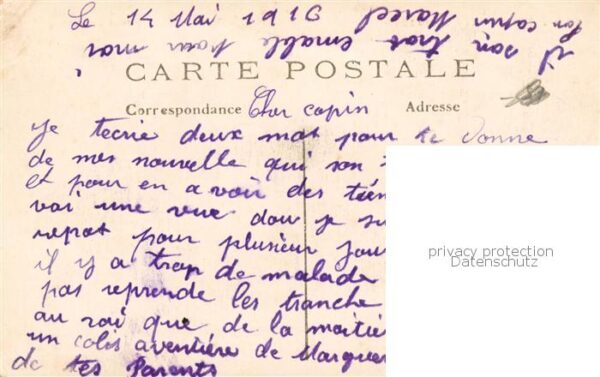 Le 14 Mai 1916
CARTE POSTALE
Correspondance Cher copin Adresse
Je tecrie deux mot pour te donne
de mes nouvelle qui son
et pour en avoir des tien
voi une vue dou je su
repos pour plusieur jour
il y a trop de malade
pas reprende les tranche
au roi que de la moitié
un colis aventiére de Margue
de tes Parents
il son trot emable pour moi
Ton copin Marcel
privacy protection
Datenschutz